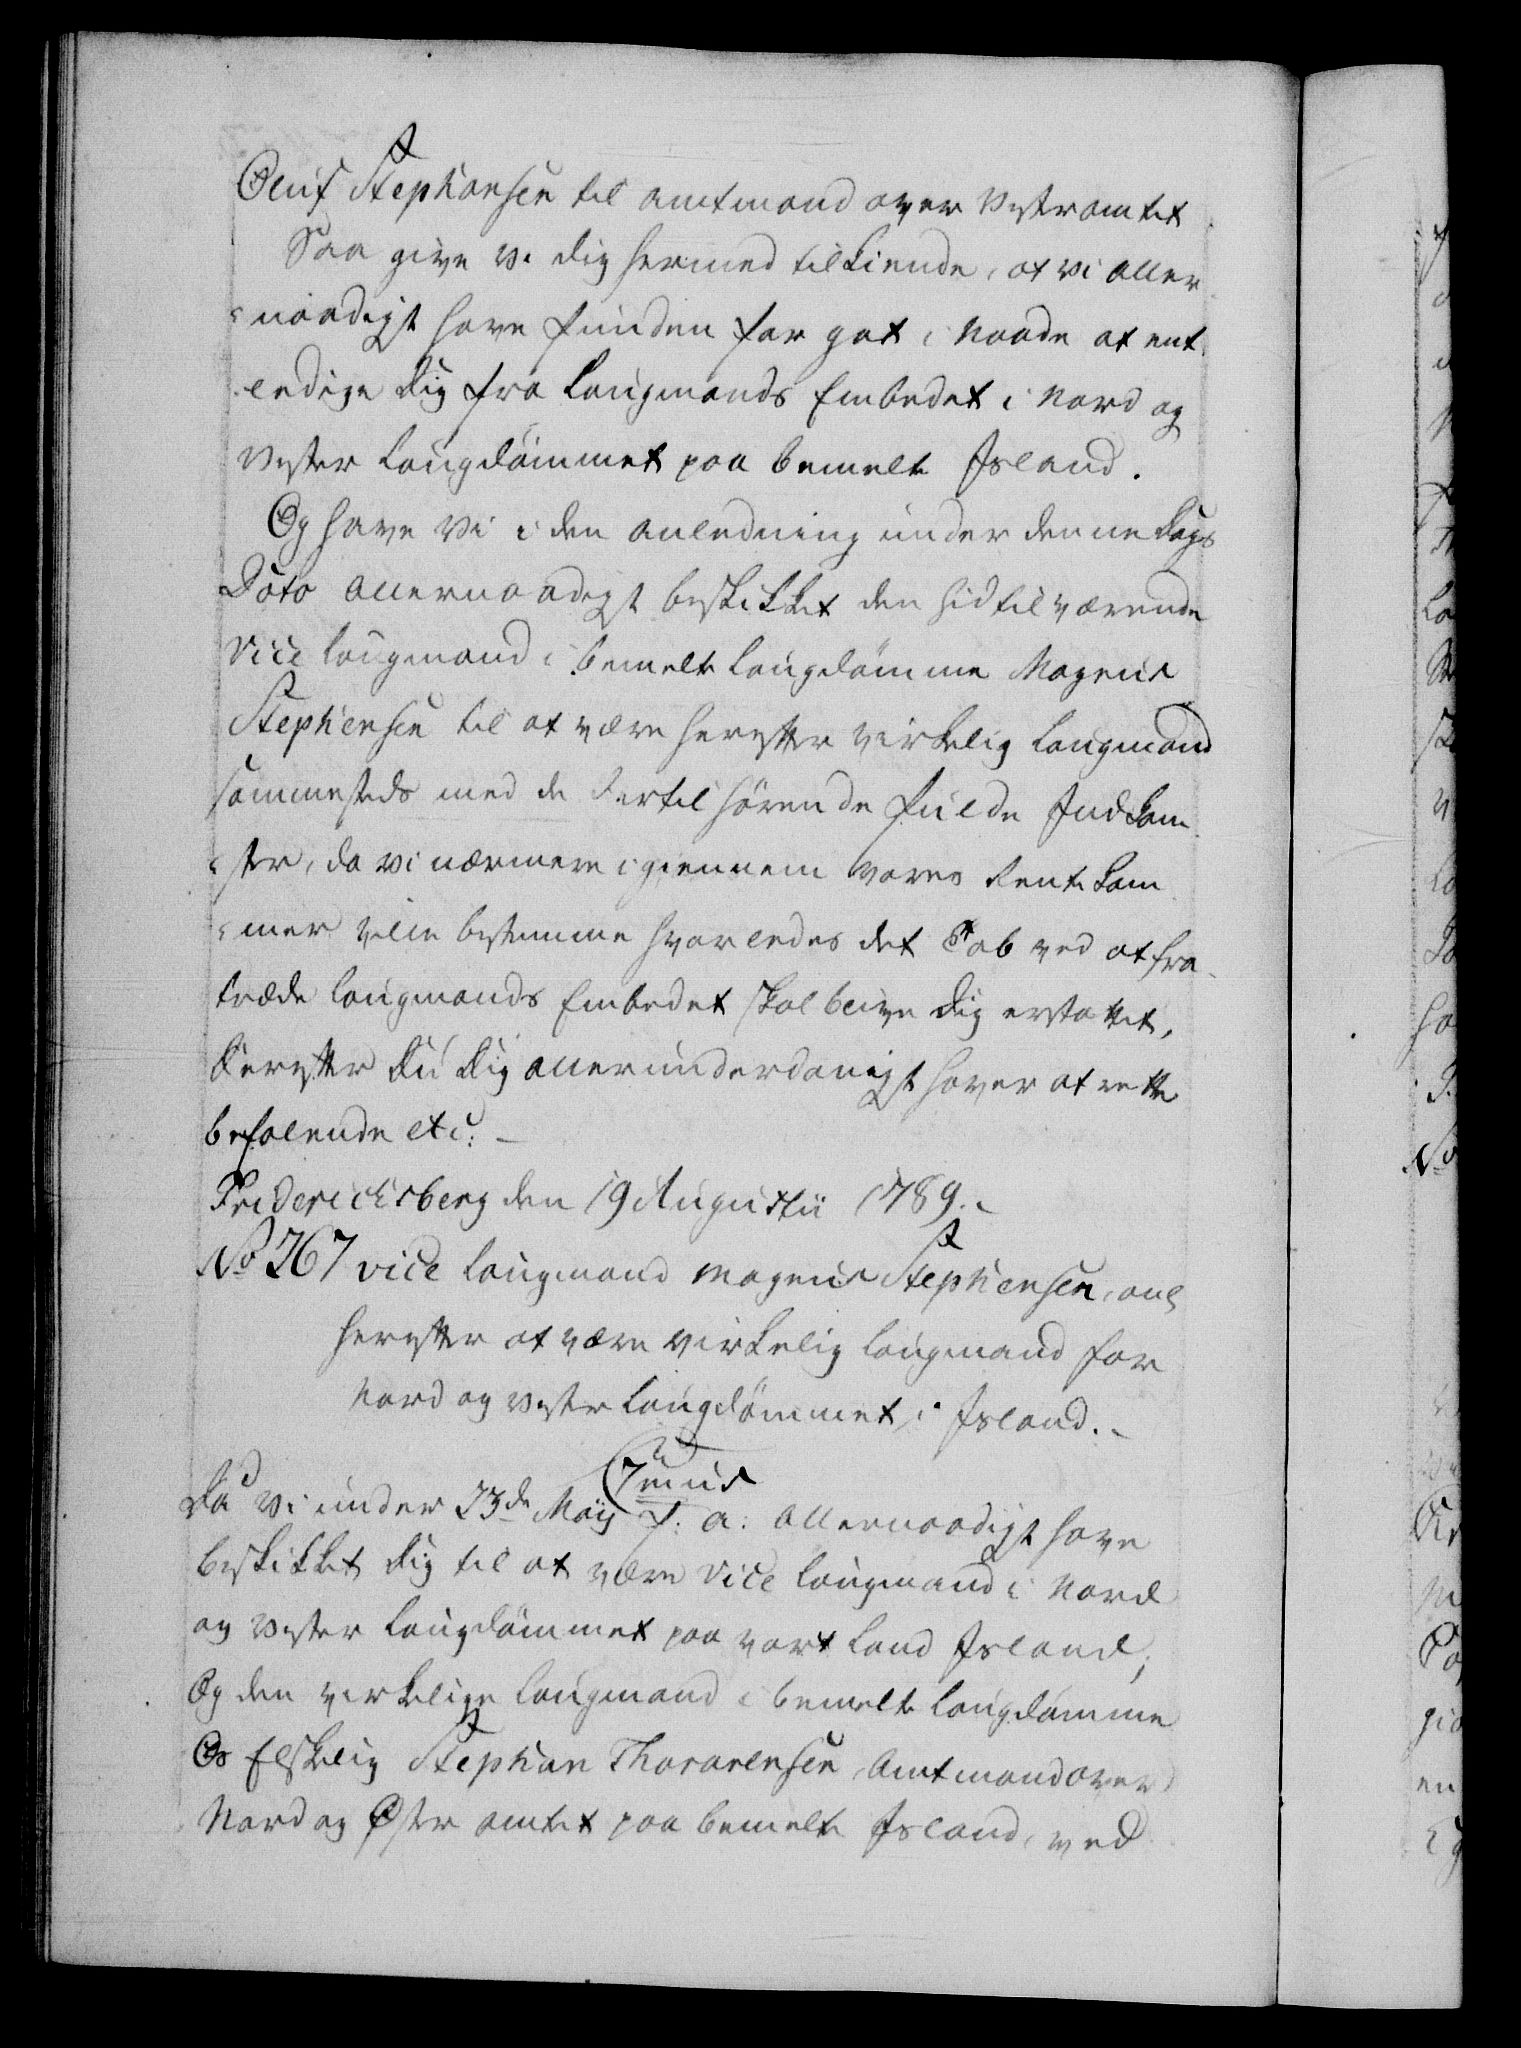 Oluf Stephansen til amtmand over Vesteramtet
Saa give Vi dig hermed tilkiende, at vi aller
naadigst have funden for got i Naade at ent
ledige Dig fra Laugmands Embedet i Nord og
Vester Laugdömmet paa bemelte Island.
Og have Vi i den anledning under denne Dags
Dato allernaadigst beskikket den hidtilværende
Vice laugmand i bemelte Laugdömme Magnus
Stephensen til at være herefter virkelig Laugmand
sammesteds med de dertil hörende fulde Indkom
ster, da vi nærmere igiennem vores Rente kam
mer ville bestemme hvorledes det Tab ved at fra
træde laugmands Embedet skal blive Dig erstattet,
Derefter Du Dig allerunderdanigst haver at rette
befalende etc: -
Friderichsberg den 19 Augustii 1789.-
No 267 vice Laugmand Magnus Stephensen, ans
herefter at være virkelig laugmand for
Nord og Vester Laugdömmet i Island.-
Genus
Da Vi under 23de Maij f: a: allernaadigst have
beskikket Dig til at være Vice laugmand i Nord
og Vester Laugdömmet paa vort Land Island;
Og den virkelige Laugmand i bemelte Laugdömme
Os Elskelig Stephan Thorarensen, Amtmand over
Nord og Öster amtet paa bemelte Island, ved